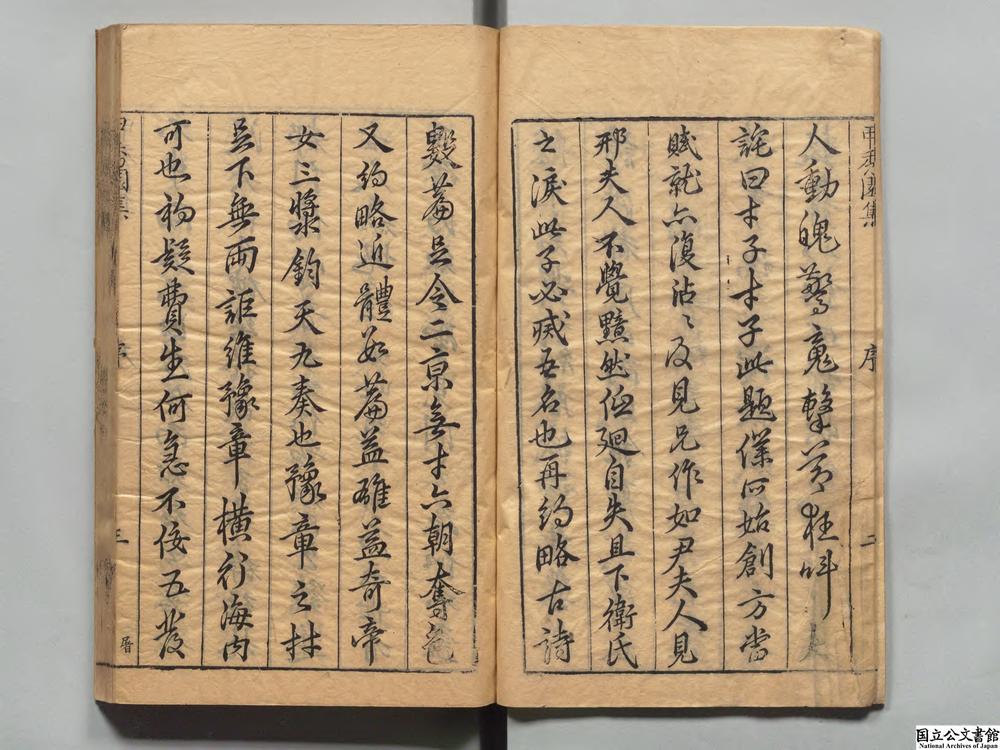 甲秀園集
序
二
人動魄驚魂擊節狂叫
詫曰才子才子此題僕所始創方當
賦就亦復沾〻及見兄作如尹夫人見
邢夫人不覺黯然低廻自失且下衛氏
之淚此子必減吾名也再約略古詩
數篇足令二京無才六朝奪色
又約略近體若篇益確益奇帝
女三漿鈞天九奏也豫章之材
吳下無兩詎維豫章橫行海內
可也初疑費生何急不佞五發
甲秀園集
序
三
國立公文書館
National Archives of Japan